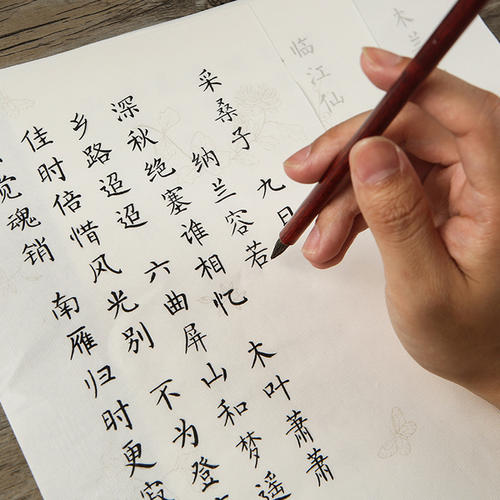 木兰
临江仙
采桑子 九日
纳兰容若
深秋绝塞谁相忆 木叶萧萧
乡路迢迢 六曲屏山和梦遥
佳时倍惜风光别 不为登
觉魂销 南雁归时更寂